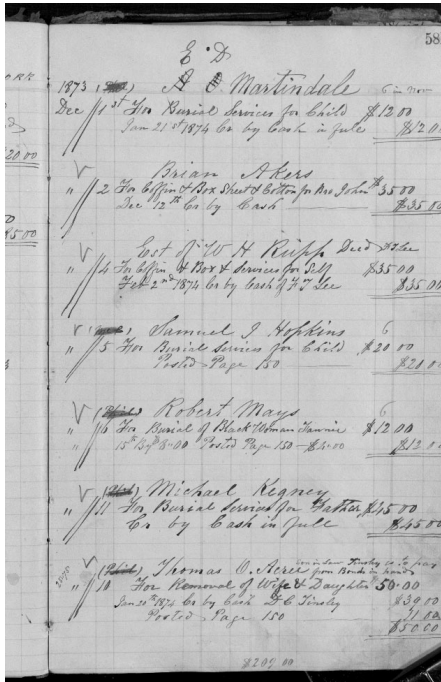 58
E. D
1873 A C Martindale 6 in Nov
Dec 1st For Burial Services for Child $12 00
Jan 21st 1874 Cr by Cash in full $12 0
20 00
Brian Akers
" 2 For Coffin & Box Sheet & Cotton for Bro John $35 00
Dec 12th Cr by Cash $35 00
5 00
Est of W H Rupp Decd
" 4 For Coffin & Box & Services for Self $35 00
Feb 2nd 1874 Cr by Cash of F J Lee $35 00
Samuel J Hopkins 6
" 5 For Burial Services for Child $20 00
Posted Page 150 $20 0
Robert Mays 6
" 6 For Burial of Black Woman Fannie $12 00
15th By $8.00 Posted Page 150 - $4.00 $12 0
Michael Kegney
" 11 For Burial Services for Father $45 00
Cr by Cash in full $45 00
Thomas O. Acree son in law Tinsley is to pay
from Bonds in hand
" 10 For Removal of Wife & Daughter 50.00
Jan 20th 1874 Cr by Cash D. C. Tinsley $39 00
Posted Page 150 11 00
$50.00
$209.00